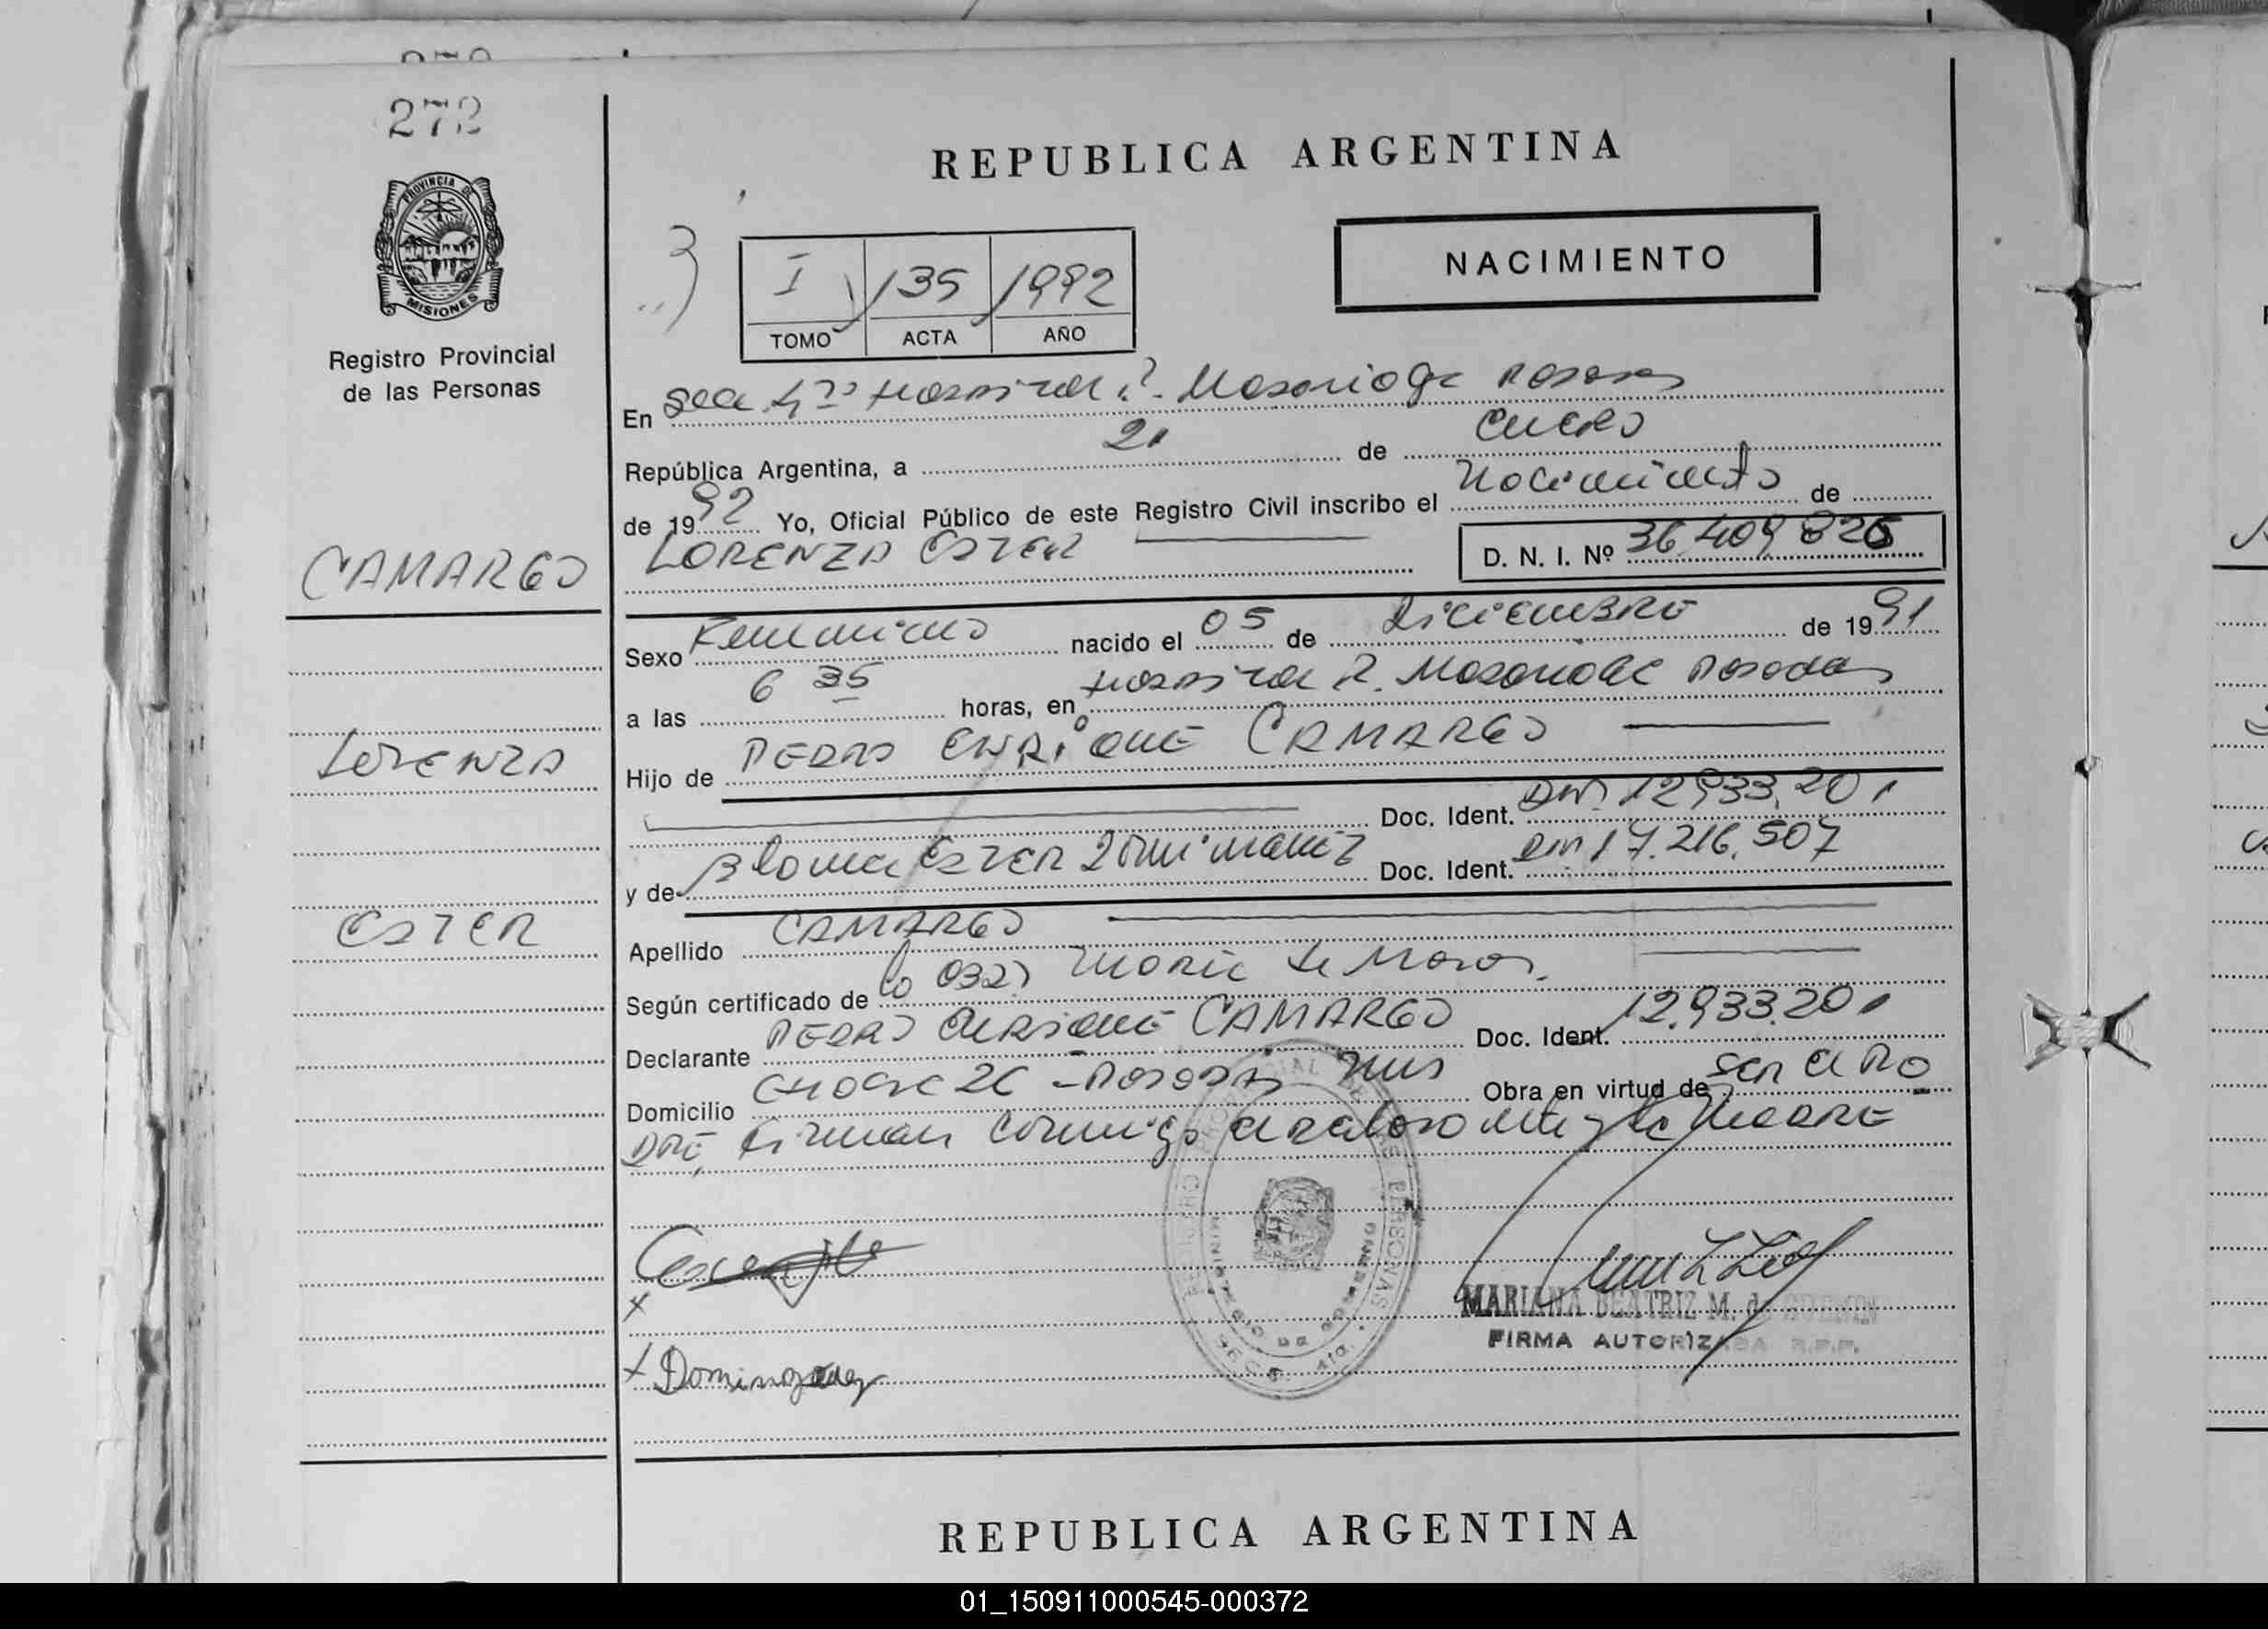 272
PROVINCIA DE
MISIONES
Registro Provincial
de las Personas
CAMARGO
LORENZA
ESTER
REPUBLICA ARGENTINA
NACIMIENTO
I 135 1992
TOMO ACTA AÑO
En Secc 4ta Hospital R. Madariaga Posadas
República Argentina, a 21 de Enero
de 1992 Yo, Oficial Público de este Registro Civil inscribo el Nacimiento de
LORENZA ESTER D. N. I. Nº 36.409.826
Sexo Femenino nacido el 05 de Diciembre de 1991
a las 6 35 horas, en Hospital R. Madariaga Posadas
Hijo de PEDRO ENRIQUE CAMARGO
Doc. Ident. DNI 12.933.201
y de Blanca Ester Domínguez Doc. Ident. DNI 17.216.507
Apellido CAMARGO
Según certificado de la Obst María de
Declarante PEDRO ENRIQUE CAMARGO Doc. Ident. 12.933.201
Domicilio 26 - Posadas Mns Obra en virtud de Ser el Pa
dre, Firman conmigo el declarante y la Madre
Dominguez
MARIANA BEATRIZ M. de
FIRMA AUTORIZADA R.P.P.
REPUBLICA ARGENTINA
01_150911000545-000372